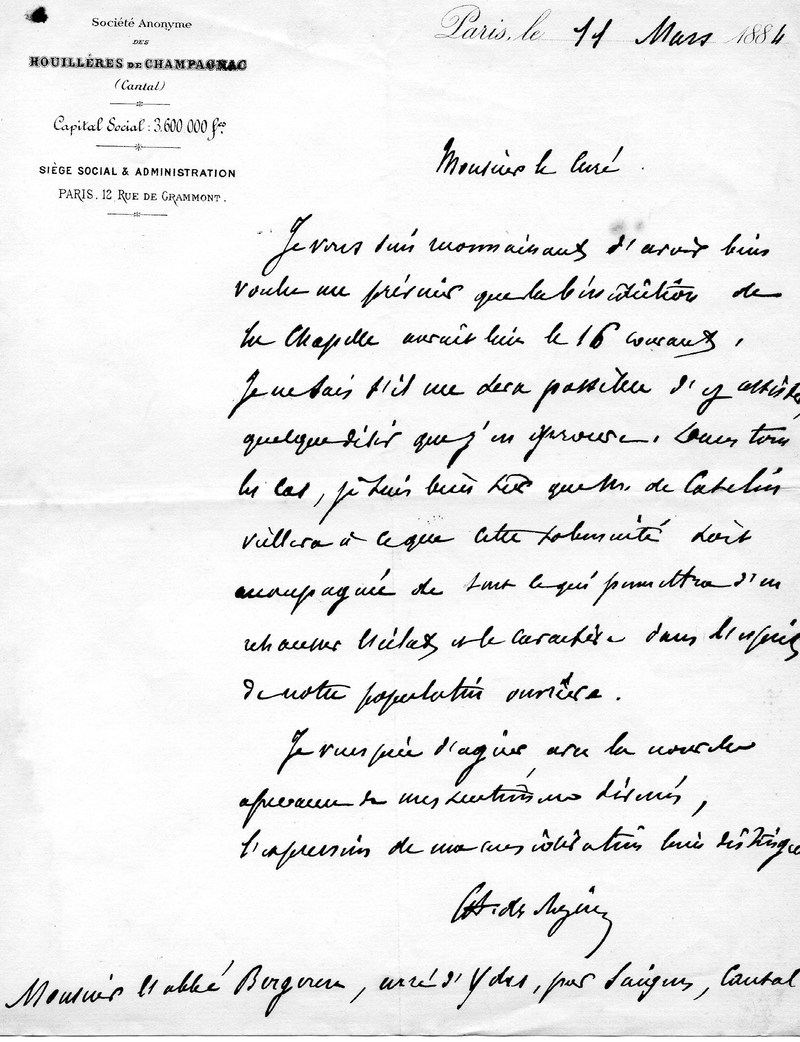 Société Anonyme
DES
HOUILLÈRES DE CHAMPAGNAC
(Cantal)
Capital Social : 3.600.000 fcs
SIÈGE SOCIAL & ADMINISTRATION
PARIS. 12 RUE DE GRAMMONT.
Paris, le 11 Mars 1884
Monsieur le Curé.
Je vous suis reconnaissant d'avoir bien
voulu me prévenir que la bénédiction de
la Chapelle aurait lieu le 16 courant.
Je ne sais s'il me sera possible d'y assister,
quelque désir que j'en éprouve. Dans tous
les cas, je suis bien sûr que M. de
veillera à ce que cette solennité soit
accompagnée de tout ce qui permettra d'en
rehausser l'éclat et le caractère dans l'esprit
de notre population ouvrière.
Je vous prie d'agréer avec la nouvelle
assurance de mes sentiments dévoués,
l'expression de ma considération bien distinguée
Monsieur l'abbé, curé d'Ydes, par Saignes, Cantal